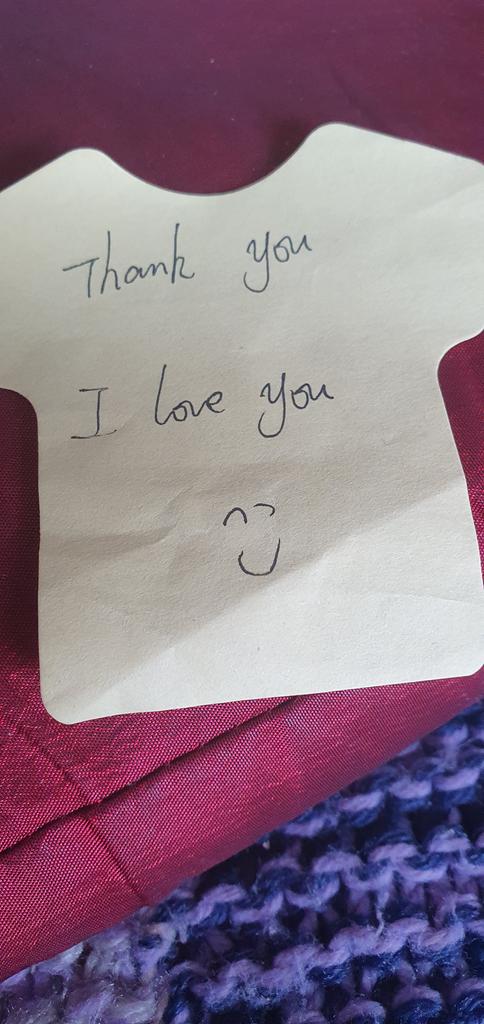 Thank you
I love you